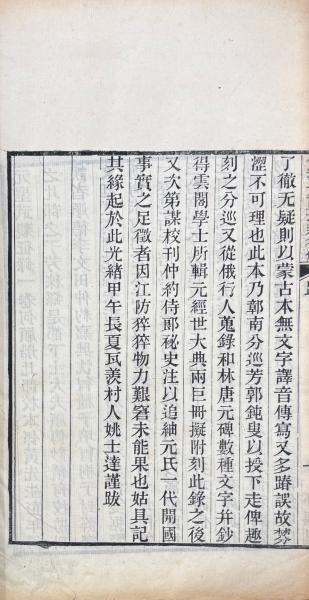 了徹无疑則以蒙古本無文字譯音傳寫又多踳誤故棼
澀不可理也此本乃鄣南分巡芳郭鈍叟以授下走俾趣
刻之分巡又從俄行人蒐錄和林唐元碑數種文字幷鈔
得雲閣學士所輯元經世大典兩巨冊擬附刻此錄之後
又次第謀校刊仲約侍郎祕史注以追紬元氏一代開國
事實之足徵者因江防猝猝物力艱窘未能果也姑具記
其緣起於此光緒甲午長夏瓦羨村人姚士達謹跋